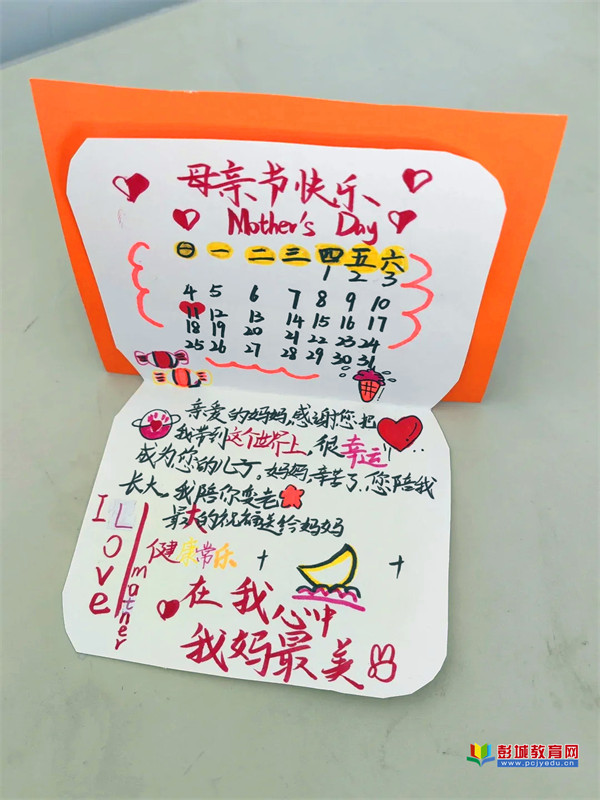 母亲节快乐
Mother's Day
日 一 二 三 四 五 六
1 2 3
4 5 6 7 8 9 10
11 12 13 14 15 16 17
18 19 20 21 22 23 24
25 26 27 28 29 30 31
亲爱的妈妈,感谢您把
我带到这个世界上,很幸运
成为您的儿子。妈妈,辛苦了,您陪我
长大,我陪你变老
最大的祝福送给妈妈
健康常乐 + +
在我心中
我妈最美
I Love
mother
彭城教育网
www.pcjyedu.cn